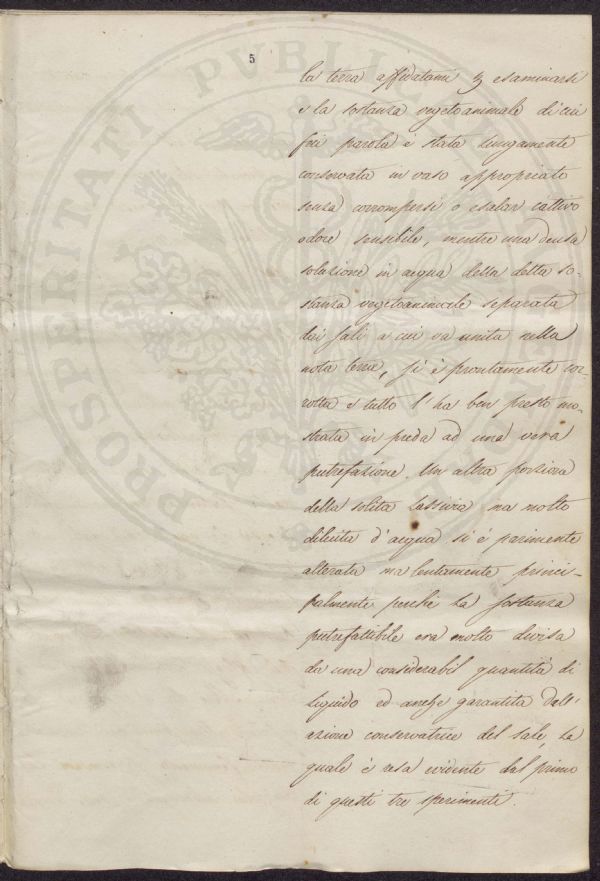 5
la terra affidatami p esaminarsi
e la sostanza vegetoanimale di cui
feci parola è stata lungamente
conservata in vaso appropriato
senza corrompersi o esalar cattivo
odore sensibile, mentre una densa
soluzione in acqua della detta so-
stanza vegetoanimale separata
dai sali a cui va unita nella
nota terra, si è prontamente cor-
rotta e tutto l'ha ben presto mo-
strata in preda ad una vera
putrefazione. Un altra porzione
della solita Lassivia ma molto
diluita d'acqua si è parimente
alterata ma lentamente princi-
palmente perchè la sostanza
putrefattibile era molto divisa
da una considerabil quantità di
liquido ed anche garantita dall'
azione conservatrice del sale, la
quale è resa evidente dal primo
di questi tre sperimenti.
PROSPERITATI PVBLIC